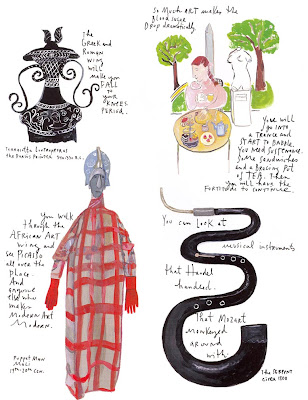 The
GREEK and
ROMAN
WING
will
make you
FALL
to
your
KNEES.
PERIOD.
So MUCH ART makes the
Blood sugar
Drop dramatically.
You will
GO INTO
a TRENCE and
START to BABBLE.
YOU NEED SUSTENANCE.
DAINTY SANDWICHES
and a BRACING POT
of TEA. Then
You will have the
FORTITUDE to CONTINUE.
You WALK
through the
AFRICAN ART
WING and
see PICASSO
all over the
place.
And
everyone
else who
makes
Modern Art
Modern.
PUPPET MAN
MALI
19th-20th CEN.
You can LOOK at
musical instruments
that Handel
handled.
That MOZART
monkeyed
around
with.
The SERPENT
circa 1800